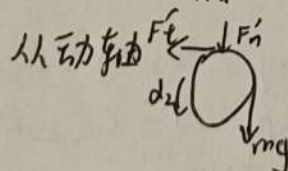 从动轴 Ft' Fn'
d2
mg